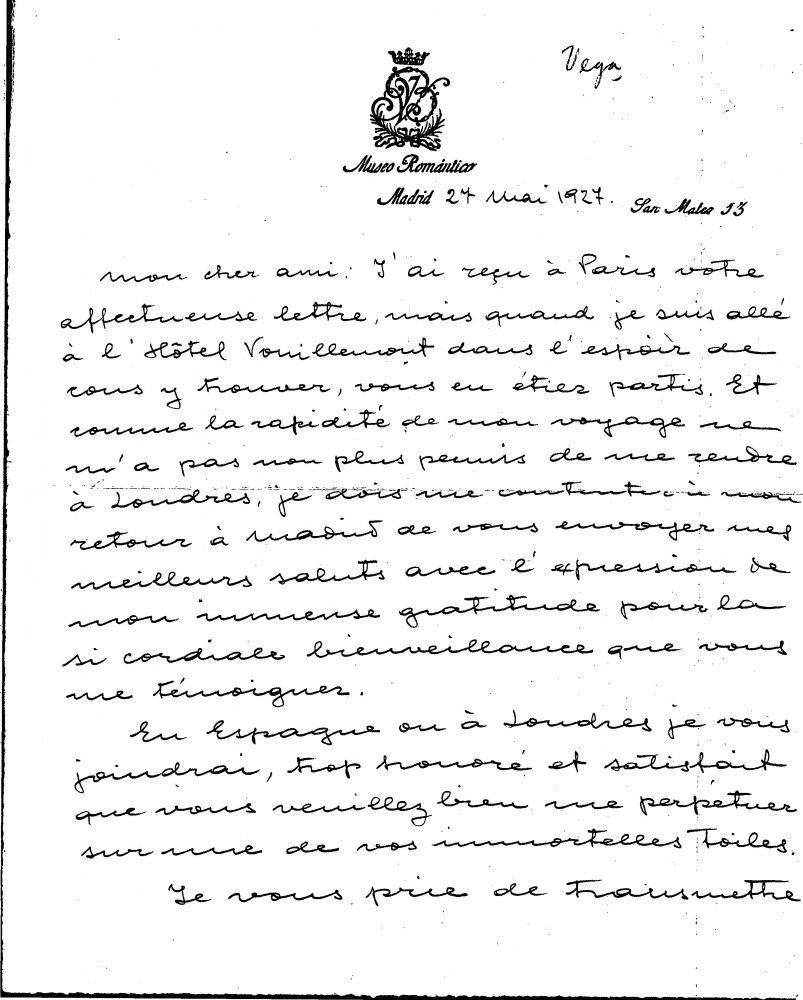 Vega
Museo Romántico
Madrid 27 Mai 1927.
San Mateo 13
mon cher ami: J'ai reçu à Paris votre
affectueuse lettre, mais quand je suis allé
à l'Hôtel Vouillemont dans l'espoir de
vous y trouver, vous en étiez partis. Et
comme la rapidité de mon voyage ne
m'a pas non plus permis de me rendre
à Londres, je dois me contenter à mon
retour à Madrid de vous envoyer mes
meilleurs saluts avec l'expression de
mon immense gratitude pour la
si cordiale bienveillance que vous
me témoignez.
En Espagne ou à Londres je vous
joindrai, trop honoré et satisfait
que vous veuillez bien me perpétuer
sur une de vos immortelles toiles.
Je vous prie de transmettre